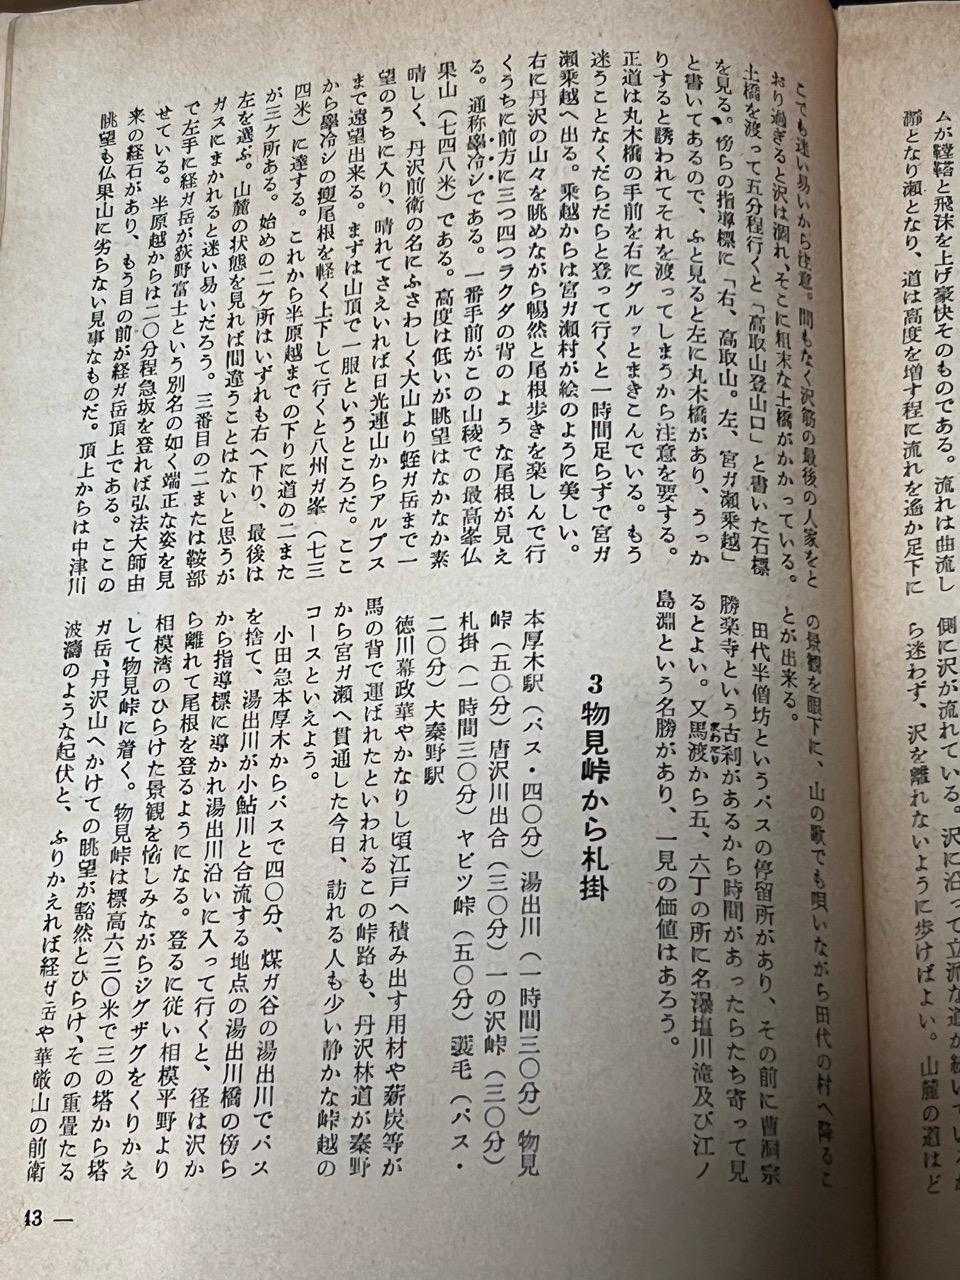 ムが鞺鞳と飛沫を上げ豪快そのものである。流れは曲流し
瀞となり瀬となり、道は高度を増す程に流れを遙か足下に
側に沢が流れている。沢に沿って立派な道が続いている
ら迷わず、沢を離れないように歩けばよい。山麓の道ほど
こでも迷い易いから注意。間もなく沢筋の最後の人家をと
おり過ぎると沢は涸れ、そこに粗末な土橋がかかっている。
土橋を渡って五分程行くと「高取山登山口」と書いた石標
を見る。傍らの指導標に「右、高取山。左、宮ガ瀬乗越」
と書いてあるので、ふと見ると左に丸木橋があり、うっか
りすると誘われてそれを渡ってしまうから注意を要する。
正道は丸木橋の手前を右にグルッとまきこんでいる。もう
迷うことなくだらだらと登って行くと一時間足らずで宮ガ
瀬乗越へ出る。乗越からは宮ガ瀬村が絵のように美しい。
右に丹沢の山々を眺めながら暢然と尾根歩きを楽しんで行
くうちに前方に三つ四つラクダの背のような尾根が見え
る。通称轝冷シである。一番手前がこの山稜での最高峯仏
果山（七四八米）である。高度は低いが眺望はなかなか素
晴しく、丹沢前衛の名にふさわしく大山より蛭ガ岳まで一
望のうちに入り、晴れてさえいれば日光連山からアルプス
まで遠望出来る。まずは山頂で一服というところだ。ここ
から轝冷シの痩尾根を軽く上下して行くと八州ガ峯（七三
四米）に達する。これから半原越までの下りに道の二また
が三ケ所ある。始めの二ケ所はいずれも右へ下り、最後は
左を選ぶ。山麓の状態を見れば間違うことはないと思うが
ガスにまかれると迷い易いだろう。三番目の二または鞍部
で左手に経ガ岳が荻野富士という別名の如く端正な姿を見
せている。半原越からは二〇分程急坂を登れば弘法大師由
来の経石があり、もう目の前が経ガ岳頂上である。ここの
眺望も仏果山に劣らない見事なものだ。頂上からは中津川
の景観を眼下に、山の歌でも唄いながら田代の村へ降るこ
とが出来る。
田代半僧坊というバスの停留所があり、その前に曹洞宗
勝楽寺という古刹があるから時間があったらたち寄って見
るとよい。又馬渡から五、六丁の所に名瀑塩川滝及び江ノ
島淵という名勝があり、一見の価値はあろう。
3 物見峠から札掛
本厚木駅（バス・四〇分）湯出川（一時間三〇分）物見
峠（五〇分）唐沢川出合（三〇分）一の沢峠（三〇分）
札掛（一時間三〇分）ヤビツ峠（五〇分）蓑毛（バス・
二〇分）大秦野駅
徳川幕政華やかなりし頃江戸へ積み出す用材や薪炭等が
馬の背で運ばれたといわれるこの峠路も、丹沢林道が秦野
から宮ガ瀬へ貫通した今日、訪れる人も少い静かな峠越の
コースといえよう。
小田急本厚木からバスで四〇分、煤ガ谷の湯出川でバス
を捨て、湯出川が小鮎川と合流する地点の湯出川橋の傍ら
から指導標に導かれ湯出川沿いに入って行くと、径は沢か
ら離れて尾根を登るようになる。登るに従い相模平野より
相模湾のひらけた景観を愉しみながらジグザグをくりかえ
して物見峠に着く。物見峠は標高六三〇米で三の塔から塔
ガ岳、丹沢山へかけての眺望が豁然とひらけ、その重畳たる
波濤のような起伏と、ふりかえれば経ガ岳や華厳山の前衛
43 —